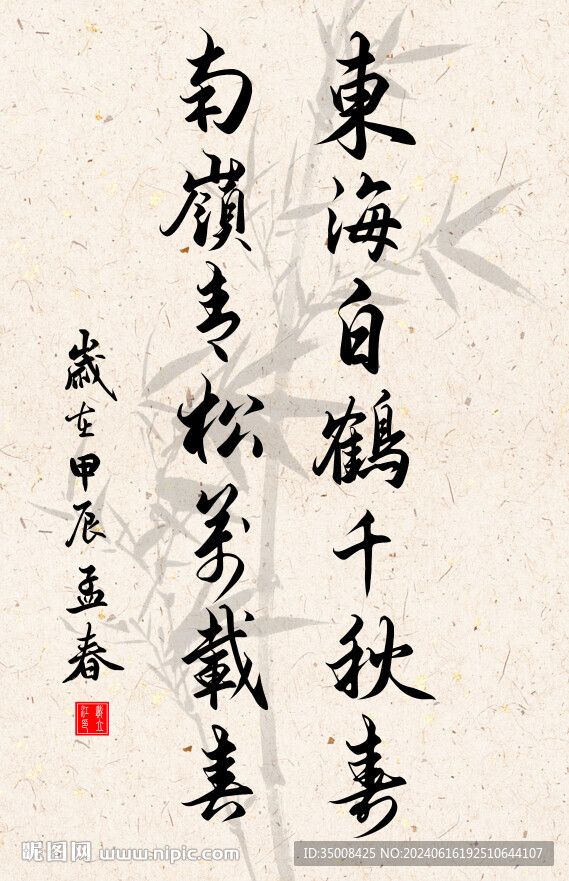 東海白鶴千秋壽
南嶺青松萬載春
歲在甲辰孟春
昵图网 www.nipic.com
ID:35008425 NO:20240616192510644107